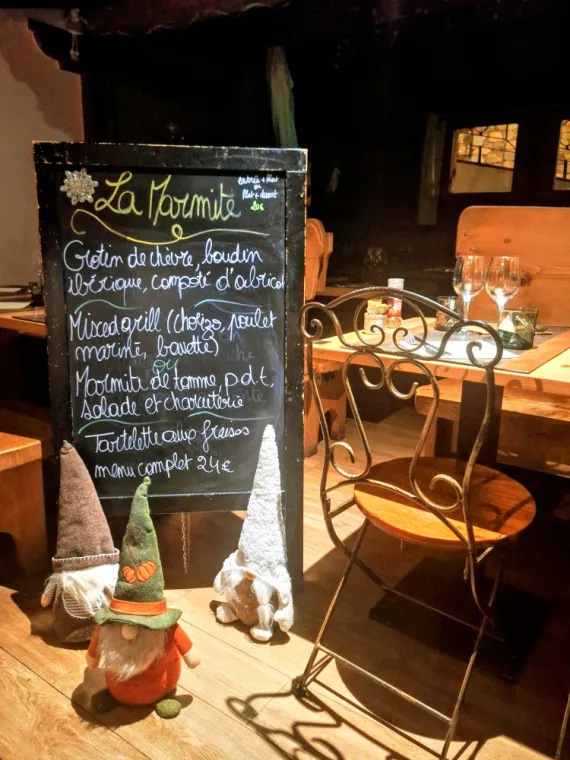 La Marmite
entrée + plat
ou
plat + dessert
20€
Crotin de chèvre, boudin
ibérique, compoté d'abricot
Mixed grill (chorizo, poulet
mariné, bavette)
ou
Marmite de tomme, p.d.t,
salade et charcuterie
Tartelette aux fraises
menu complet 24€